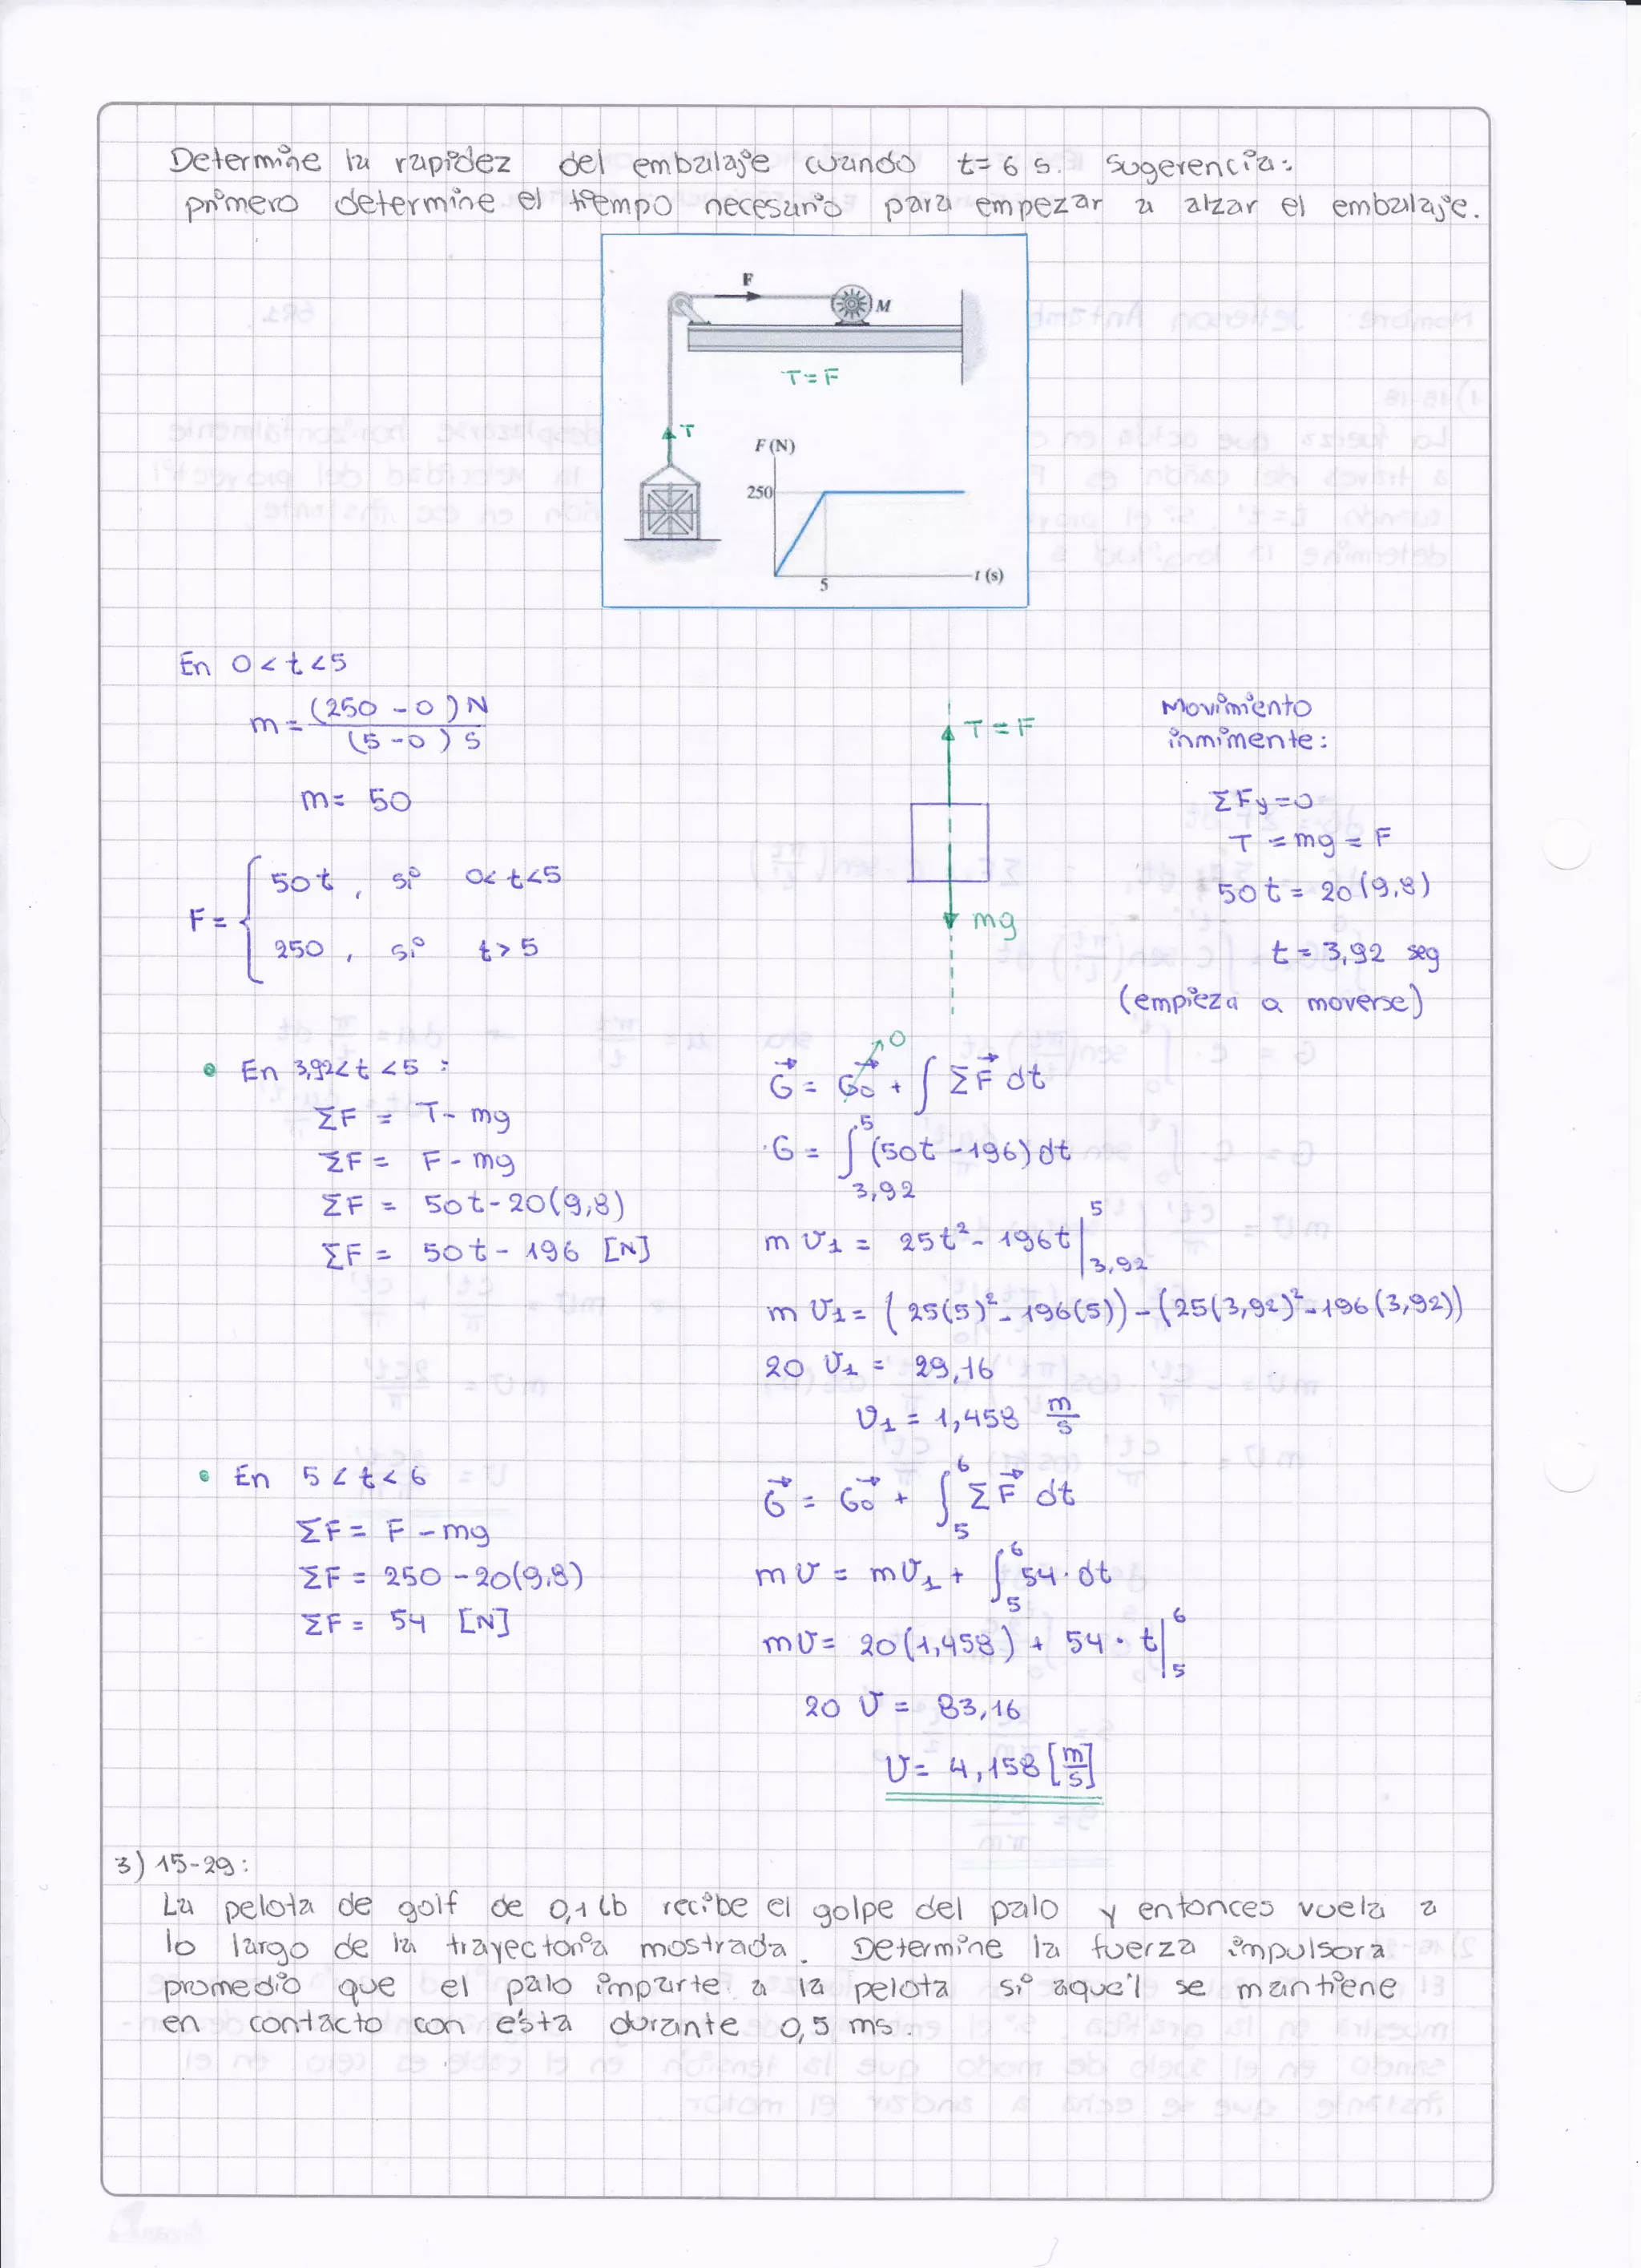 Determine la rapidez del embalaje cuando t= 6 s. Sugerencia:
primero determine el tiempo necesario para empezar a alzar el embalaje.
F
M
T = F
T
F (N)
250
5
t (s)
En 0 < t < 5
m = (250 - 0) N / (5 - 0) s
m = 50
F = { 50t , si 0 < t < 5
250 , si t > 5
T = F
mg
Movimiento
inmimente:
ΣFy = 0
T = mg = F
50 t = 20(9,8)
t = 3,92 seg
(empieza a moverse)
• En 3,92 < t < 5 :
ΣF = T - mg
ΣF = F - mg
ΣF = 50t - 20(9,8)
ΣF = 50t - 196 [N]
G⃗ = G⃗o↗0 + ∫ ΣF⃗ dt
G = ∫_{3,92}^{5} (50t - 196) dt
m v₁ = 25t² - 196t |_{3,92}^{5}
m v₁ = (25(5)² - 196(5)) - (25(3,92)² - 196(3,92))
20 v₁ = 29,16
v₁ = 1,458 m/s
• En 5 < t < 6
ΣF = F - mg
ΣF = 250 - 20(9,8)
ΣF = 54 [N]
G⃗ = G⃗o + ∫_{5}^{6} ΣF⃗ dt
m v = m v₁ + ∫_{5}^{6} 54 · dt
m v = 20(1,458) + 54 · t |_{5}^{6}
20 v = 83,16
v = 4,158 [m/s]
3) 15-29:
La pelota de golf de 0,1 lb recibe el golpe del palo y entonces vuela a
lo largo de la trayectoria mostrada. Determine la fuerza impulsora
promedio que el palo imparte a la pelota si aquél se mantiene
en contacto con ésta durante 0,5 ms.